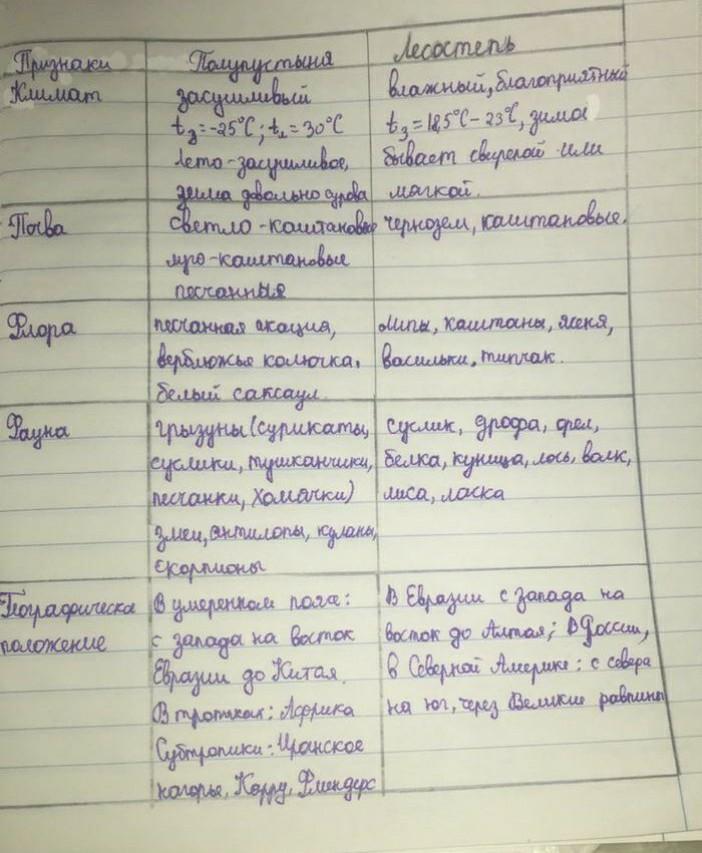 Признаки Полупустыня Лесостепь
Климат засушливый влажный, благоприятный
tз=-25°С; tл=30°С tз=18,5°С-23°С, зима
Лето-засушливое, бывает свирепой или
зима довольно сурова мягкой.
Почва светло-каштановые чернозем, каштановые.
луго-каштановые
песчанные
Флора песчанная акация, липы, каштаны, ясеня,
верблюжье колючка, васильки, типчак.
белый саксаул.
Фауна грызуны (сурикаты, суслик, дрофа, орел,
суслики, тушканчики, белка, куница, лось, волк,
песчанки, хомячки) лиса, ласка
змеи, антилопы, куланы,
скорпионы
Географическа В умеренном поясе: В Евразии с запада на
положение с запада на восток восток до Алтая; В России,
Евразии до Китая. в Северной Америке: с севера
В тропиках: Африка на юг, через Великие равнины
Субтропики: Иранское
нагорье, Карру, Флиндерс